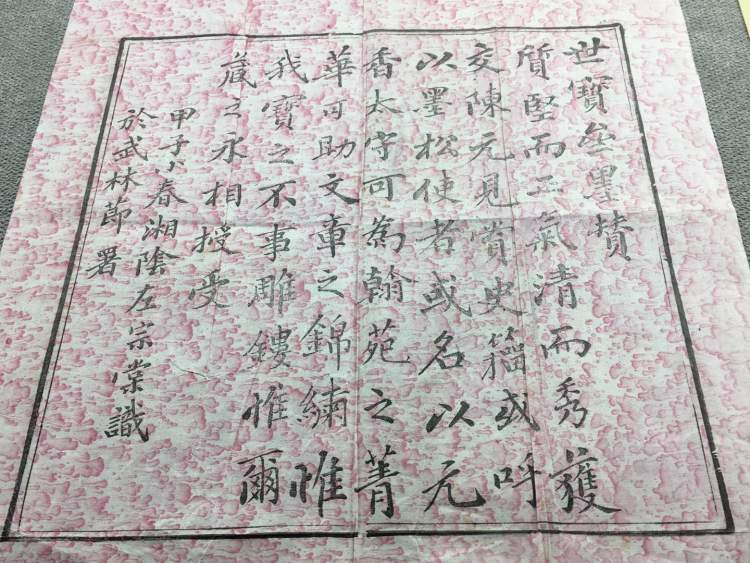 世寶叁墨贊
質堅而正氣清而秀獲
交陳元見賞史籀或呼
以墨松使者或名以元
香太守可為翰苑之菁
華可助文章之錦繡惟
我寶之不事雕鏤惟爾
蔵之永相授受
甲子小春湘陰左宗棠識
於武林節署